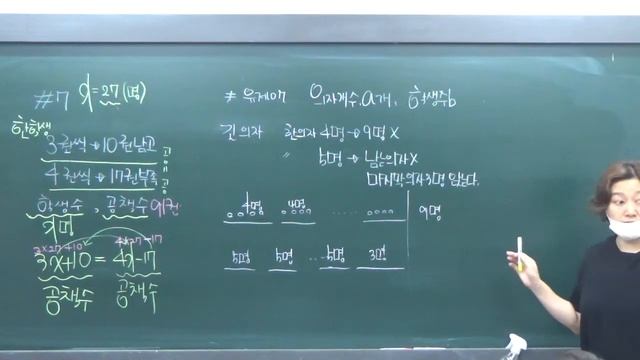 #7 x=27(명)
한 학생
3권씩→10권 남고
4권씩→17권 부족
공
책
공
학생수, 공책수
x명
3×27+10 4×27-17
3x+10 = 4x-17
공책수 공책수
# 유제07 의자개수:a개, 학생수b
긴 의자 한의자 4명→9명 X
〃 5명→남는의자X
마지막의자 3명 앉는다.
4명 4명 ..... 9명
5명 5명 ... 5명 3명